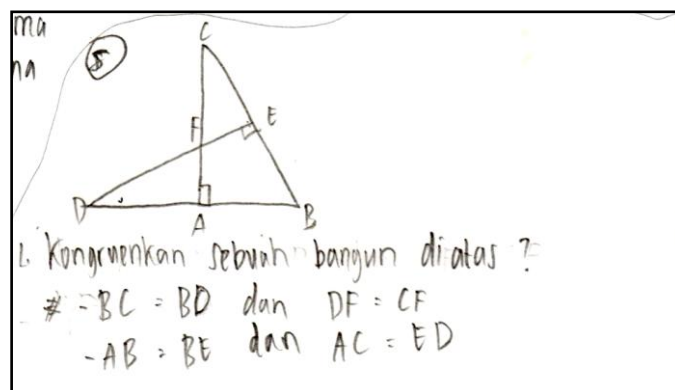 ma
na
5
C
E
F
D
A
B
Kongruenkan sebuah bangun diatas ?
# - BC = BD dan DF = CF
- AB = BE dan AC = ED